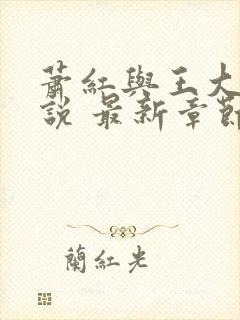 蕭紅與王大
說 最新章節
蘭紅光